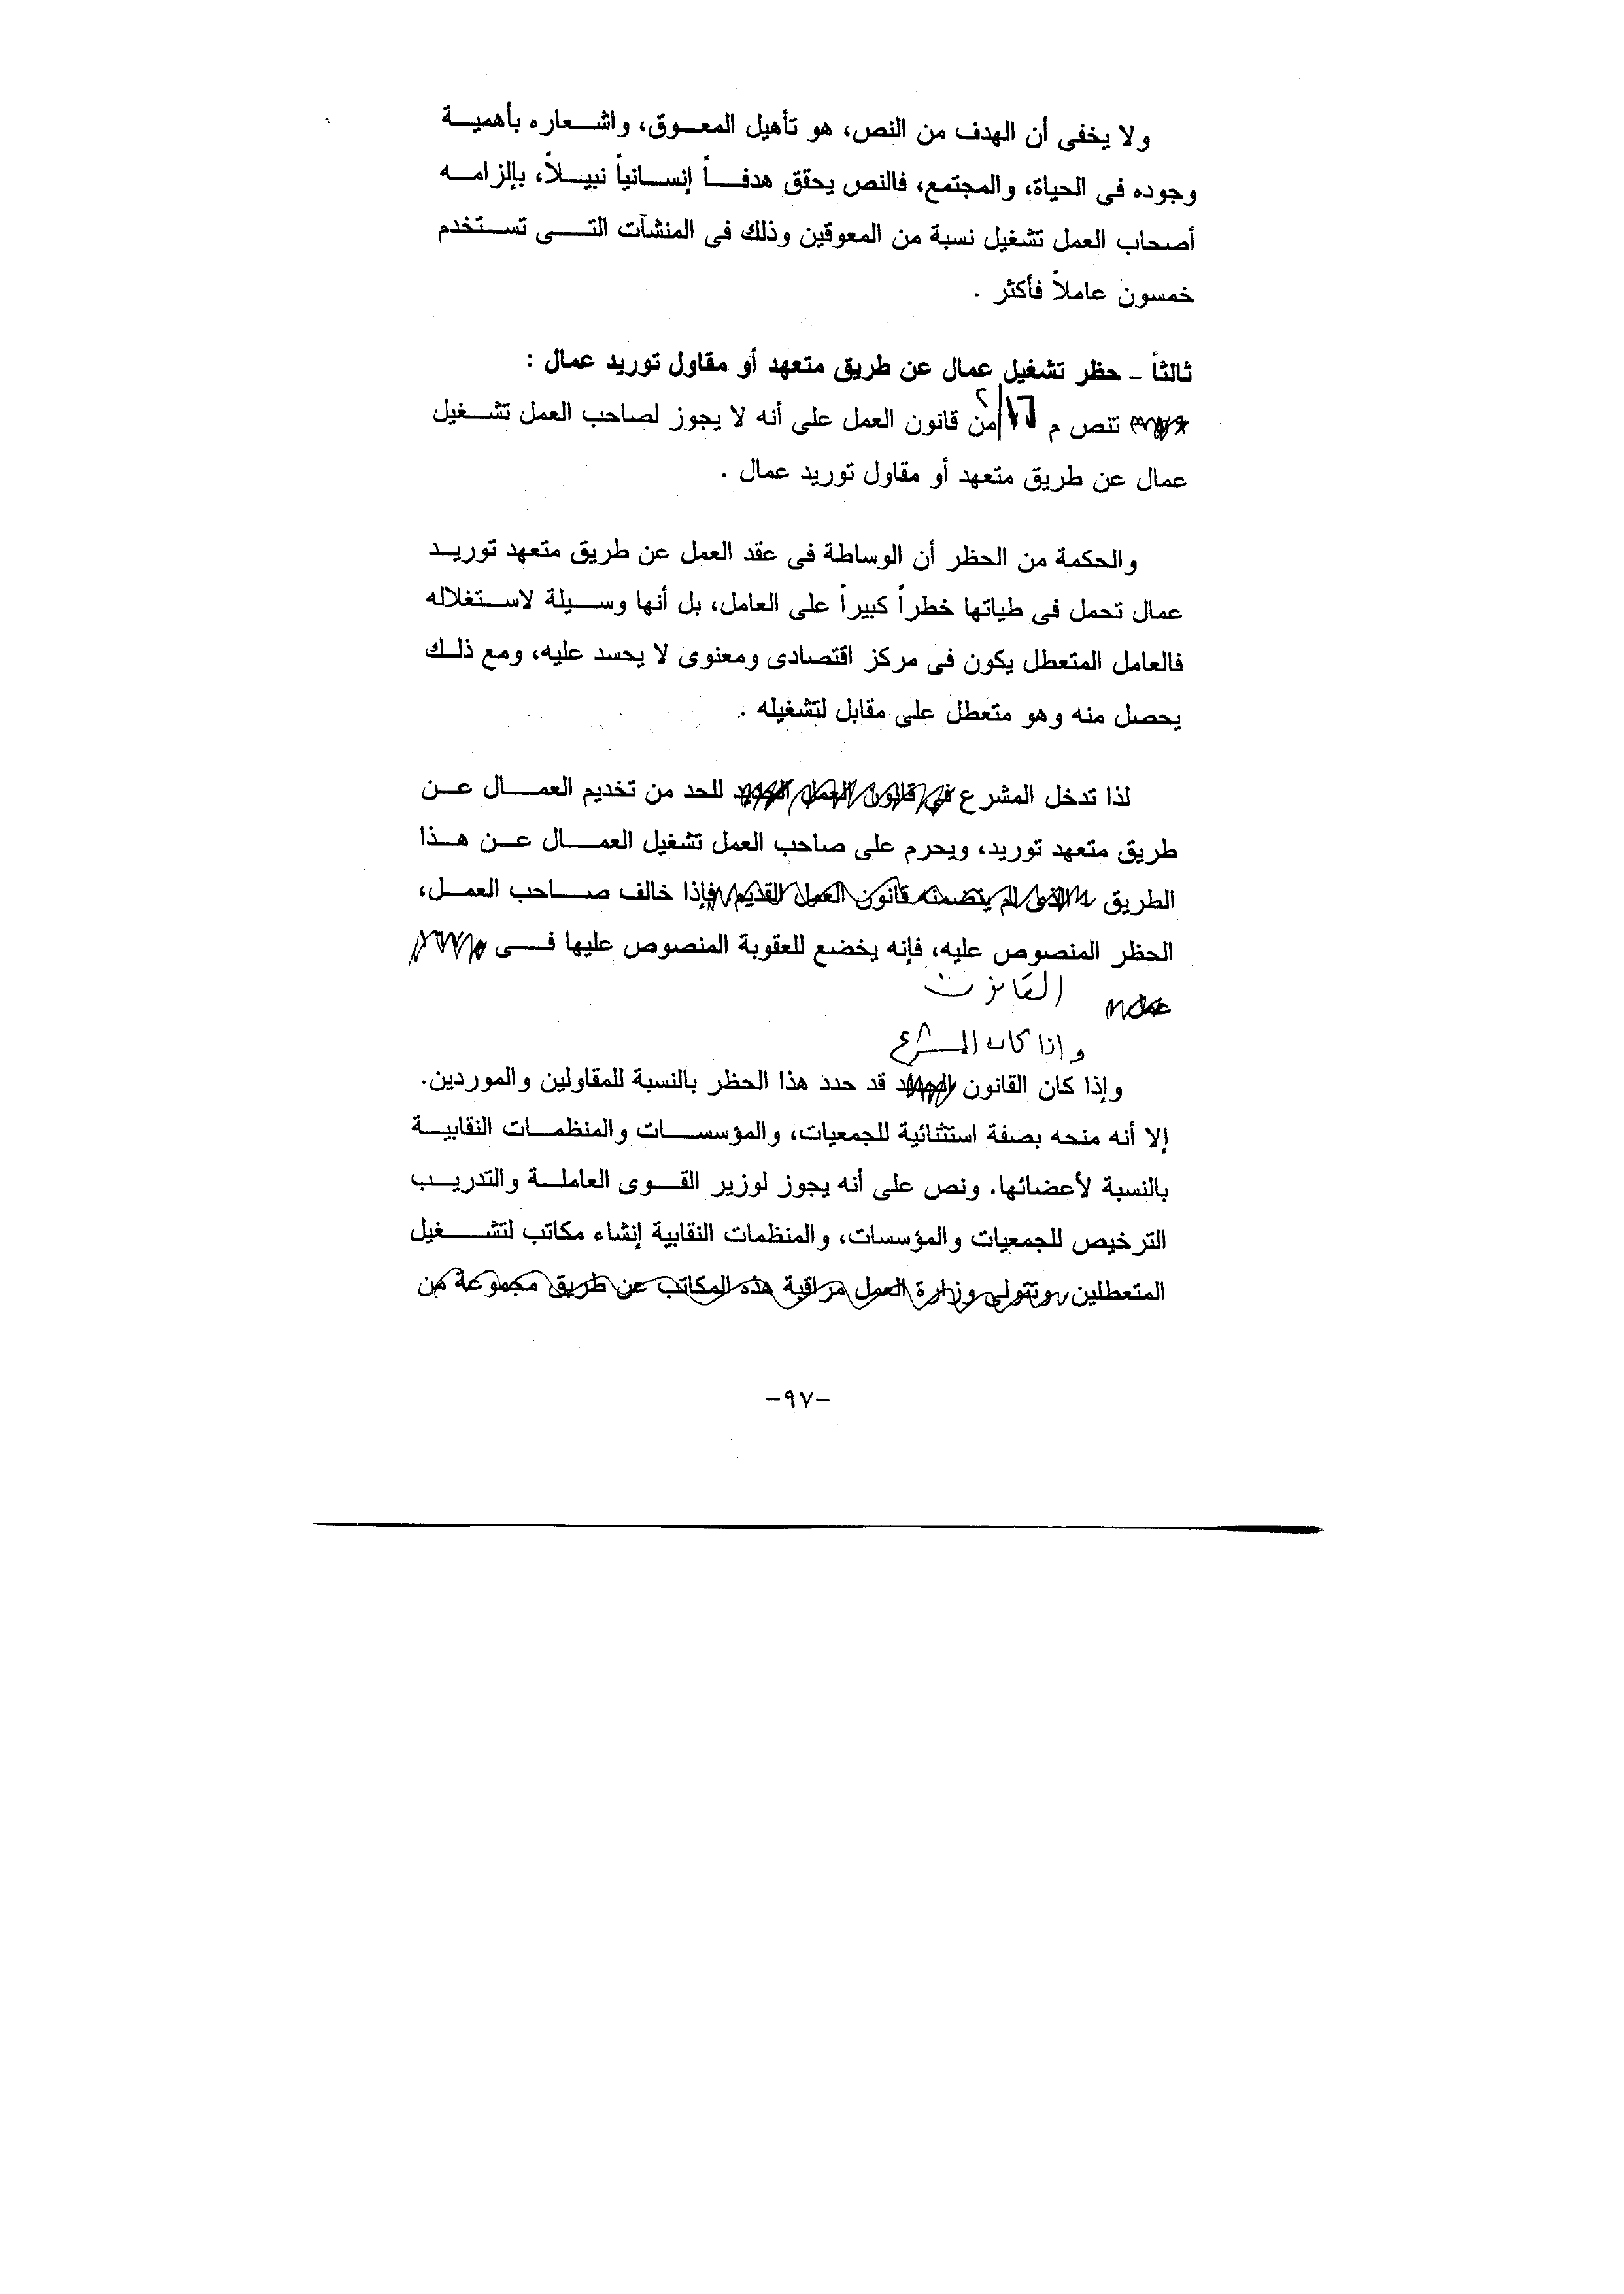 ولا يخفى أن الهدف من النص، هو تأهيل المعوق، واشعاره بأهمية
وجوده فى الحياة، والمجتمع، فالنص يحقق هدفاً إنسانياً نبيلاً، بإلزامه
أصحاب العمل تشغيل نسبة من المعوقين وذلك فى المنشآت التى تستخدم
خمسون عاملاً فأكثر .
ثالثاً - حظر تشغيل عمال عن طريق متعهد أو مقاول توريد عمال :
تنص م ١٦/٢ من قانون العمل على أنه لا يجوز لصاحب العمل تشغيل
عمال عن طريق متعهد أو مقاول توريد عمال .
والحكمة من الحظر أن الوساطة فى عقد العمل عن طريق متعهد توريد
عمال تحمل فى طياتها خطراً كبيراً على العامل، بل أنها وسيلة لاستغلاله
فالعامل المتعطل يكون فى مركز اقتصادى ومعنوى لا يحسد عليه، ومع ذلك
يحصل منه وهو متعطل على مقابل لتشغيله .
لذا تدخل المشرع فى قانون العمل الجديد للحد من تخديم العمال عن
طريق متعهد توريد، ويحرم على صاحب العمل تشغيل العمال عن هذا
الطريق الذى لم يتضمنه قانون العمل القديم فإذا خالف صاحب العمل،
الحظر المنصوص عليه، فإنه يخضع للعقوبة المنصوص عليها فى
عمل القانون
وإذا كان المشرع
وإذا كان القانون الجديد قد حدد هذا الحظر بالنسبة للمقاولين والموردين.
إلا أنه منحه بصفة استثنائية للجمعيات، والمؤسسات والمنظمات النقابية
بالنسبة لأعضائها. ونص على أنه يجوز لوزير القوى العاملة والتدريب
الترخيص للجمعيات والمؤسسات، والمنظمات النقابية إنشاء مكاتب لتشغيل
المتعطلين وتتولى وزارة العمل مراقبة هذه المكاتب عن طريق مجموعة من
-٩٧-